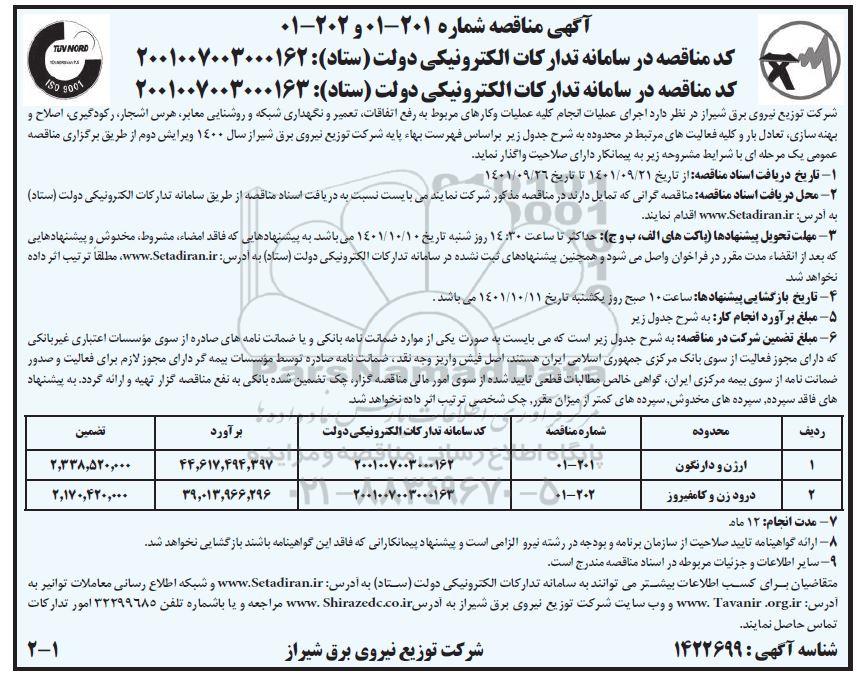 آگهی مناقصه شماره ۲۰۱-۰۱ و ۲۰۲-۰۱
کد مناقصه در سامانه تدارکات الکترونیکی دولت (ستاد): ۲۰۰۱۰۰۷۰۰۳۰۰۰۱۶۲
کد مناقصه در سامانه تدارکات الکترونیکی دولت (ستاد): ۲۰۰۱۰۰۷۰۰۳۰۰۰۱۶۳
TÜV NORD
ISO 9001
شرکت توزیع نیروی برق شیراز در نظر دارد اجرای عملیات انجام کلیه عملیات وکارهای مربوط به رفع اتفاقات، تعمیر و نگهداری شبکه و روشنایی معابر، هرس اشجار، رکودگیری، اصلاح و
بهنه سازی، تعادل بار و کلیه فعالیت های مرتبط در محدوده به شرح جدول زیر براساس فهرست بهاء پایه شرکت توزیع نیروی برق شیراز سال ۱۴۰۰ ویرایش دوم از طریق برگزاری مناقصه
عمومی یک مرحله ای با شرایط مشروحه زیر به پیمانکار دارای صلاحیت واگذار نماید.
۱- تاریخ دریافت اسناد مناقصه: از تاریخ ۱۴۰۱/۰۹/۲۱ تا تاریخ ۱۴۰۱/۰۹/۲۶
۲- محل دریافت اسناد مناقصه: مناقصه گرانی که تمایل دارند در مناقصه مذکور شرکت نمایند می بایست نسبت به دریافت اسناد مناقصه از طریق سامانه تدارکات الکترونیکی دولت (ستاد)
به آدرس: www.Setadiran.ir اقدام نمایند.
۳- مهلت تحویل پیشنهادها (پاکت های الف، ب و ج): حداکثر تا ساعت ۱۴:۳۰ روز شنبه تاریخ ۱۴۰۱/۱۰/۱۰ می‌باشد. به پیشنهادهایی که فاقد امضاء، مشروط، مخدوش و پیشنهادهایی
که بعد از انقضاء مدت مقرر در فراخوان واصل می شود و همچنین پیشنهادهای ثبت نشده در سامانه تدارکات الکترونیکی دولت (ستاد) به آدرس: www.Setadiran.ir، مطلقاً ترتیب اثر داده
نخواهد شد.
۴- تاریخ بازگشایی پیشنهادها: ساعت ۱۰ صبح روز یکشنبه تاریخ ۱۴۰۱/۱۰/۱۱ می باشد .
۵- مبلغ برآورد انجام کار: به شرح جدول زیر
۶- مبلغ تضمین شرکت در مناقصه: به شرح جدول زیر است که می بایست به صورت یکی از موارد ضمانت نامه بانکی و یا ضمانت نامه های صادره از سوی مؤسسات اعتباری غیربانکی
که دارای مجوز فعالیت از سوی بانک مرکزی جمهوری اسلامی ایران هستند، اصل فیش واریز وجه نقد، ضمانت نامه صادره توسط مؤسسات بیمه گر دارای مجوز لازم برای فعالیت و صدور
ضمانت نامه از سوی بیمه مرکزی ایران، گواهی خالص مطالبات قطعی تایید شده از سوی امور مالی مناقصه گزار، چک تضمین شده بانکی به نفع مناقصه گزار تهیه و ارائه گردد. به پیشنهاد
های فاقد سپرده، سپرده های مخدوش، سپرده های کمتر از میزان مقرر، چک شخصی ترتیب اثر داده نخواهد شد.
ردیف محدوده شماره مناقصه کد سامانه تدارکات الکترونیکی دولت برآورد تضمین
۱ ارژن و دارنگون ۲۰۱-۰۱ ۲۰۰۱۰۰۷۰۰۳۰۰۰۱۶۲ ۴۴,۶۱۷,۴۹۴,۳۹۷ ۲,۳۳۸,۵۲۰,۰۰۰
۲ درود زن و کامفیروز ۲۰۲-۰۱ ۲۰۰۱۰۰۷۰۰۳۰۰۰۱۶۳ ۳۹,۰۱۳,۹۶۶,۲۹۶ ۲,۱۷۰,۴۲۰,۰۰۰
۷- مدت انجام: ۱۲ ماه.
۸- ارائه گواهینامه تایید صلاحیت از سازمان برنامه و بودجه در رشته نیرو الزامی است و پیشنهاد پیمانکارانی که فاقد این گواهینامه باشند بازگشایی نخواهد شد.
۹- سایر اطلاعات و جزئیات مربوطه در اسناد مناقصه مندرج است.
متقاضیان بـرای کسـب اطلاعات بیشـتر می توانند به سامانه تدارکات الکترونیکی دولت (سـتاد) به آدرس: www.Setadiran.ir و شبکه اطلاع رسانی معاملات توانیر به
آدرس: www. Tavanir .org.ir و وب سایت شرکت توزیع نیروی برق شیراز به آدرس www. Shirazedc.co.ir مراجعه و یا باشماره تلفن ۳۲۲۹۹۶۸۵ امور تدارکات
تماس حاصل نمایند.
شناسه آگهی : ۱۴۲۲۶۹۹ شرکت توزیع نیروی برق شیراز ۲-۱
ParsNamadData
پایگاه اطلاع رسانی مناقصه و مزایده
۰۲۱-۸۸۳۴۹۶۷۰-۵